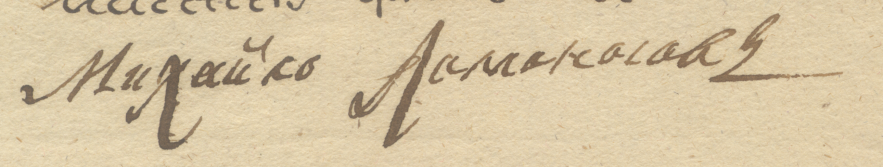 Михайло Ломоносовъ